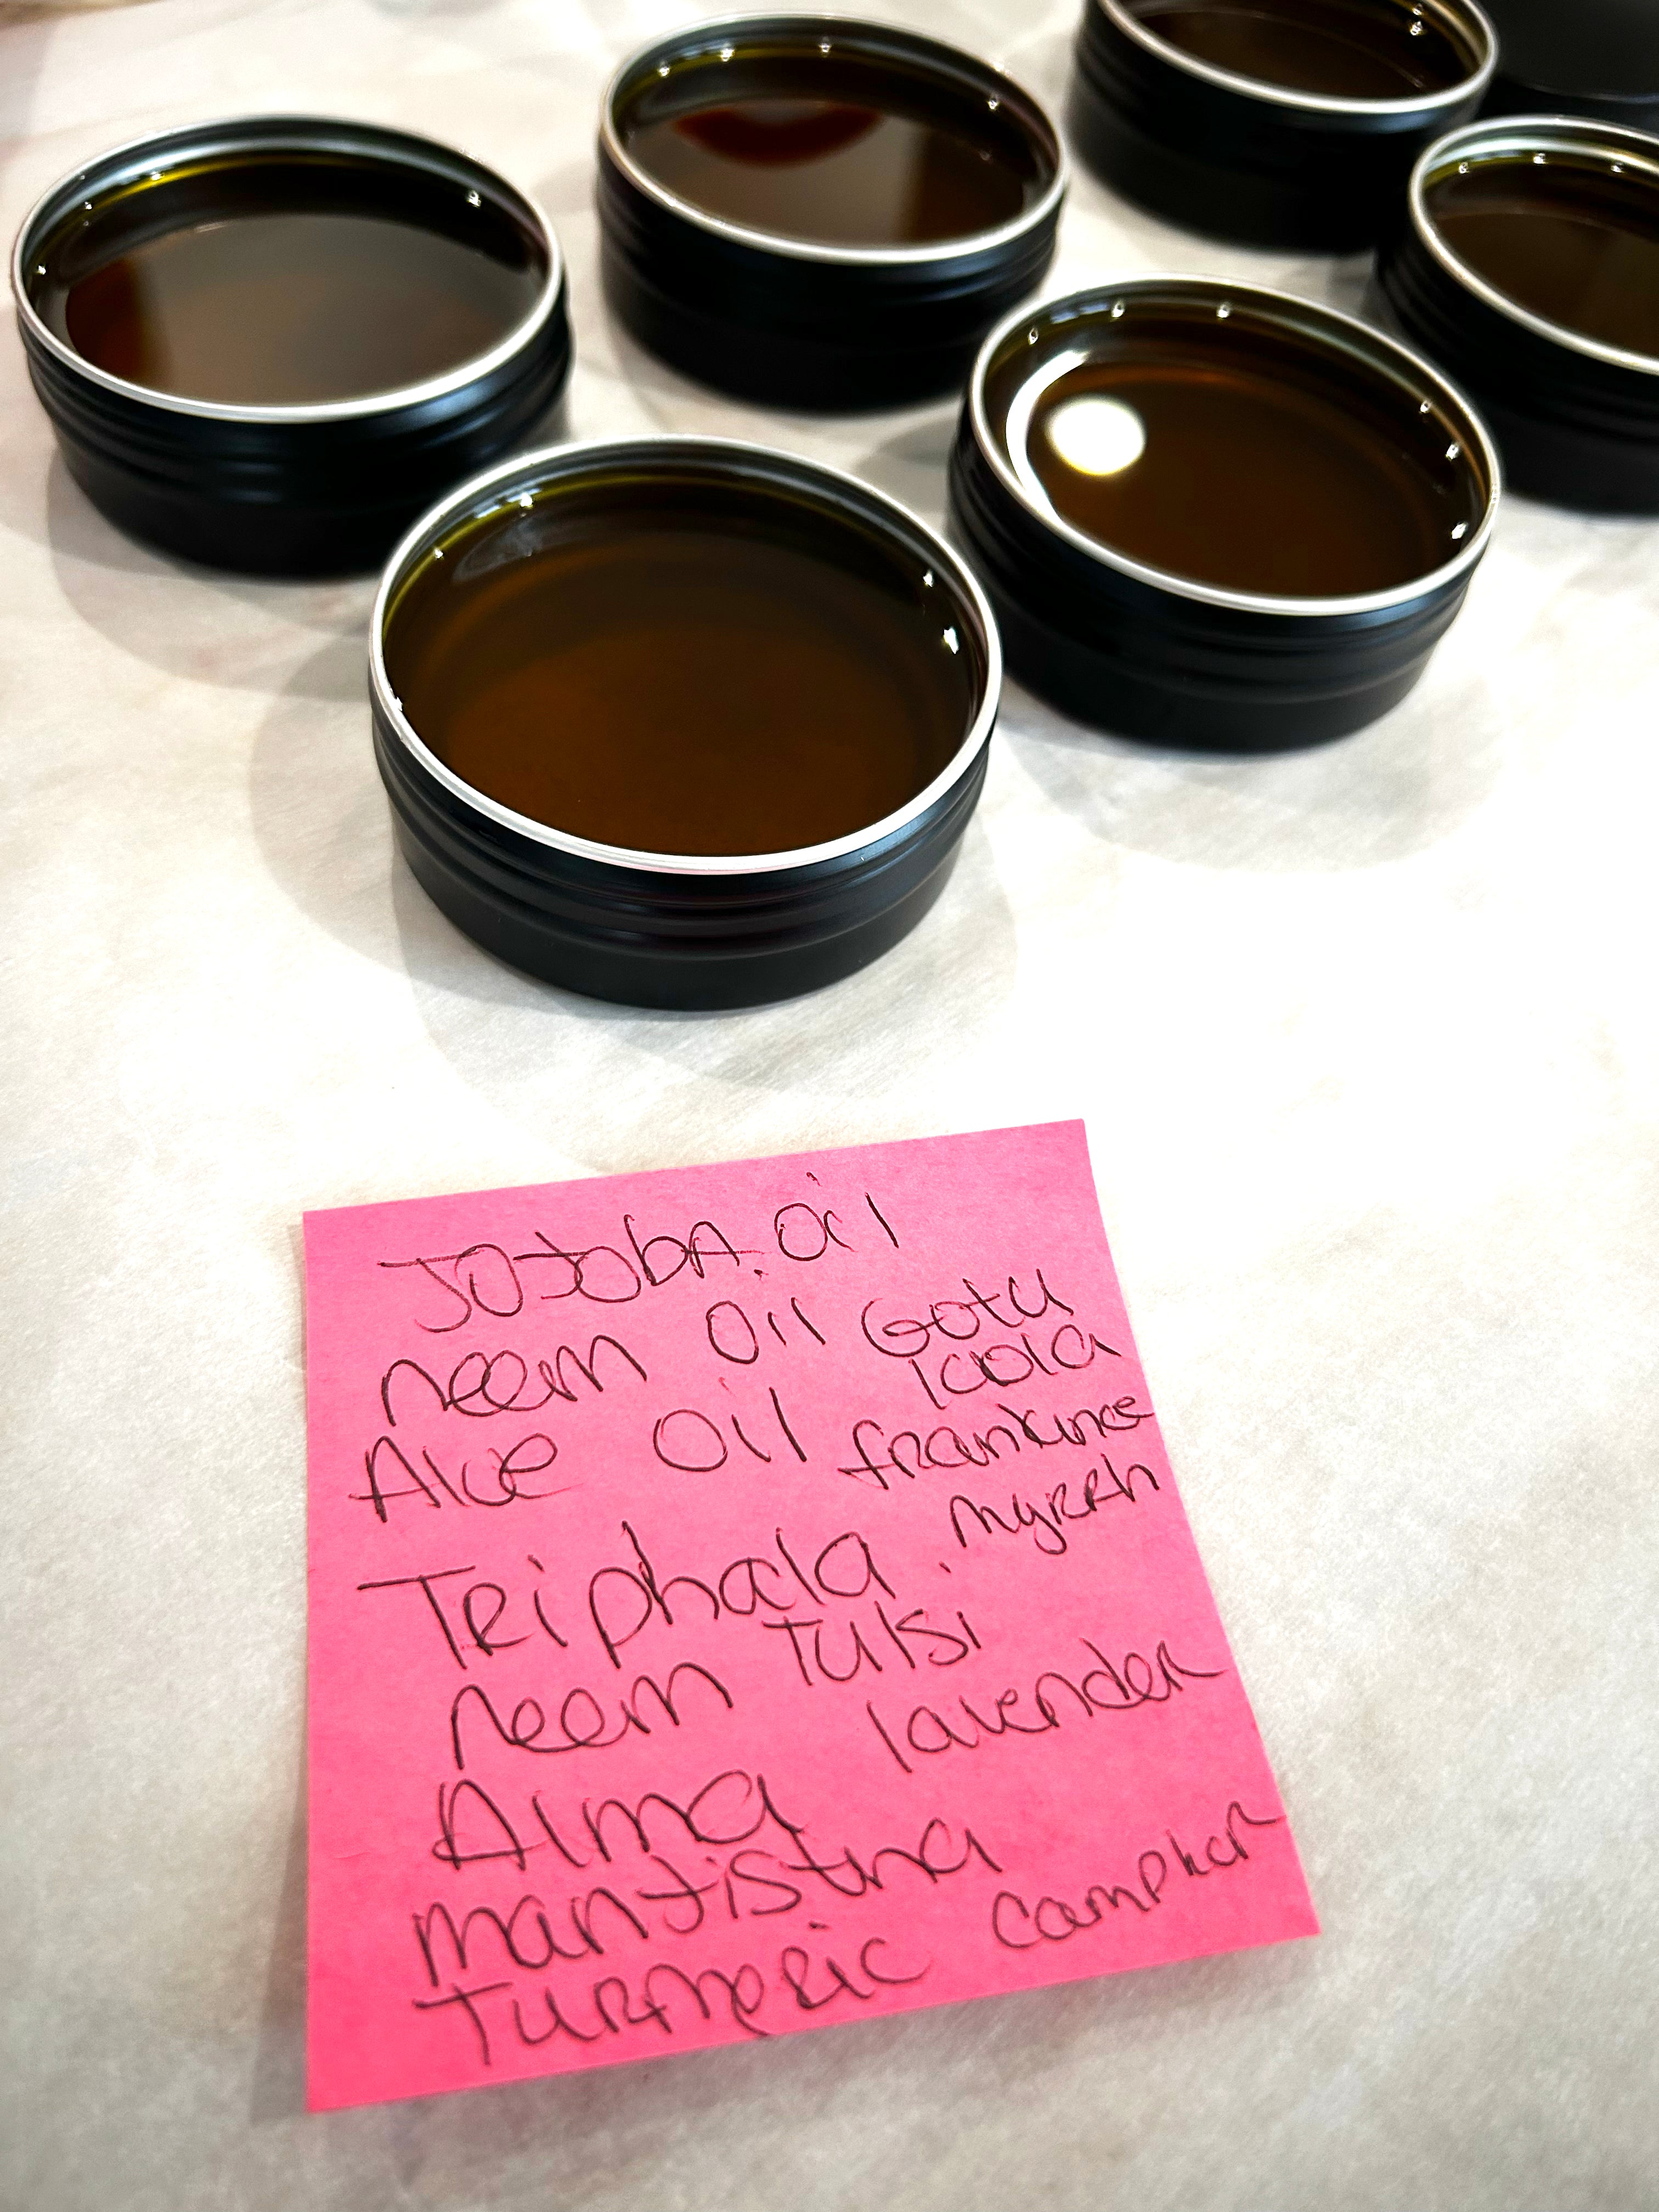 Jojoba Oil
neem Oil Gotu
kola
Aloe Oil frankince
myrrh
Triphala
neem Tulsi
lavender
Alma
manjistha
Turmeric camphor